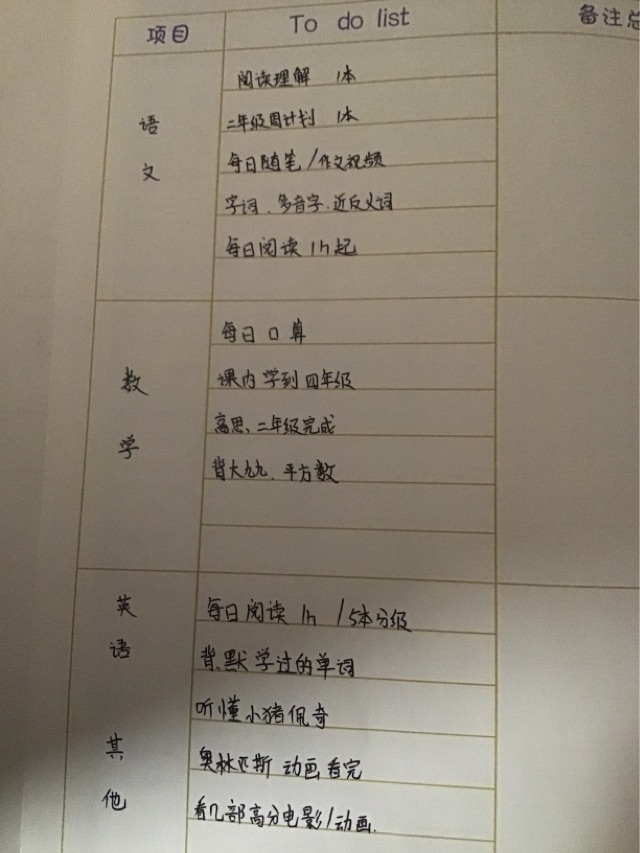 项目 To do list 备注总
语文
阅读理解 1本
二年级周计划 1本
每日随笔/作文视频
字词、多音字、近反义词
每日阅读 1h起
数学
每日口算
课内学到四年级
高思、二年级完成
背大九九、平方数
英语
每日阅读 1h /5本分级
背、默学过的单词
听懂小猪佩奇
其他
奥林匹斯 动画看完
看几部高分电影/动画.